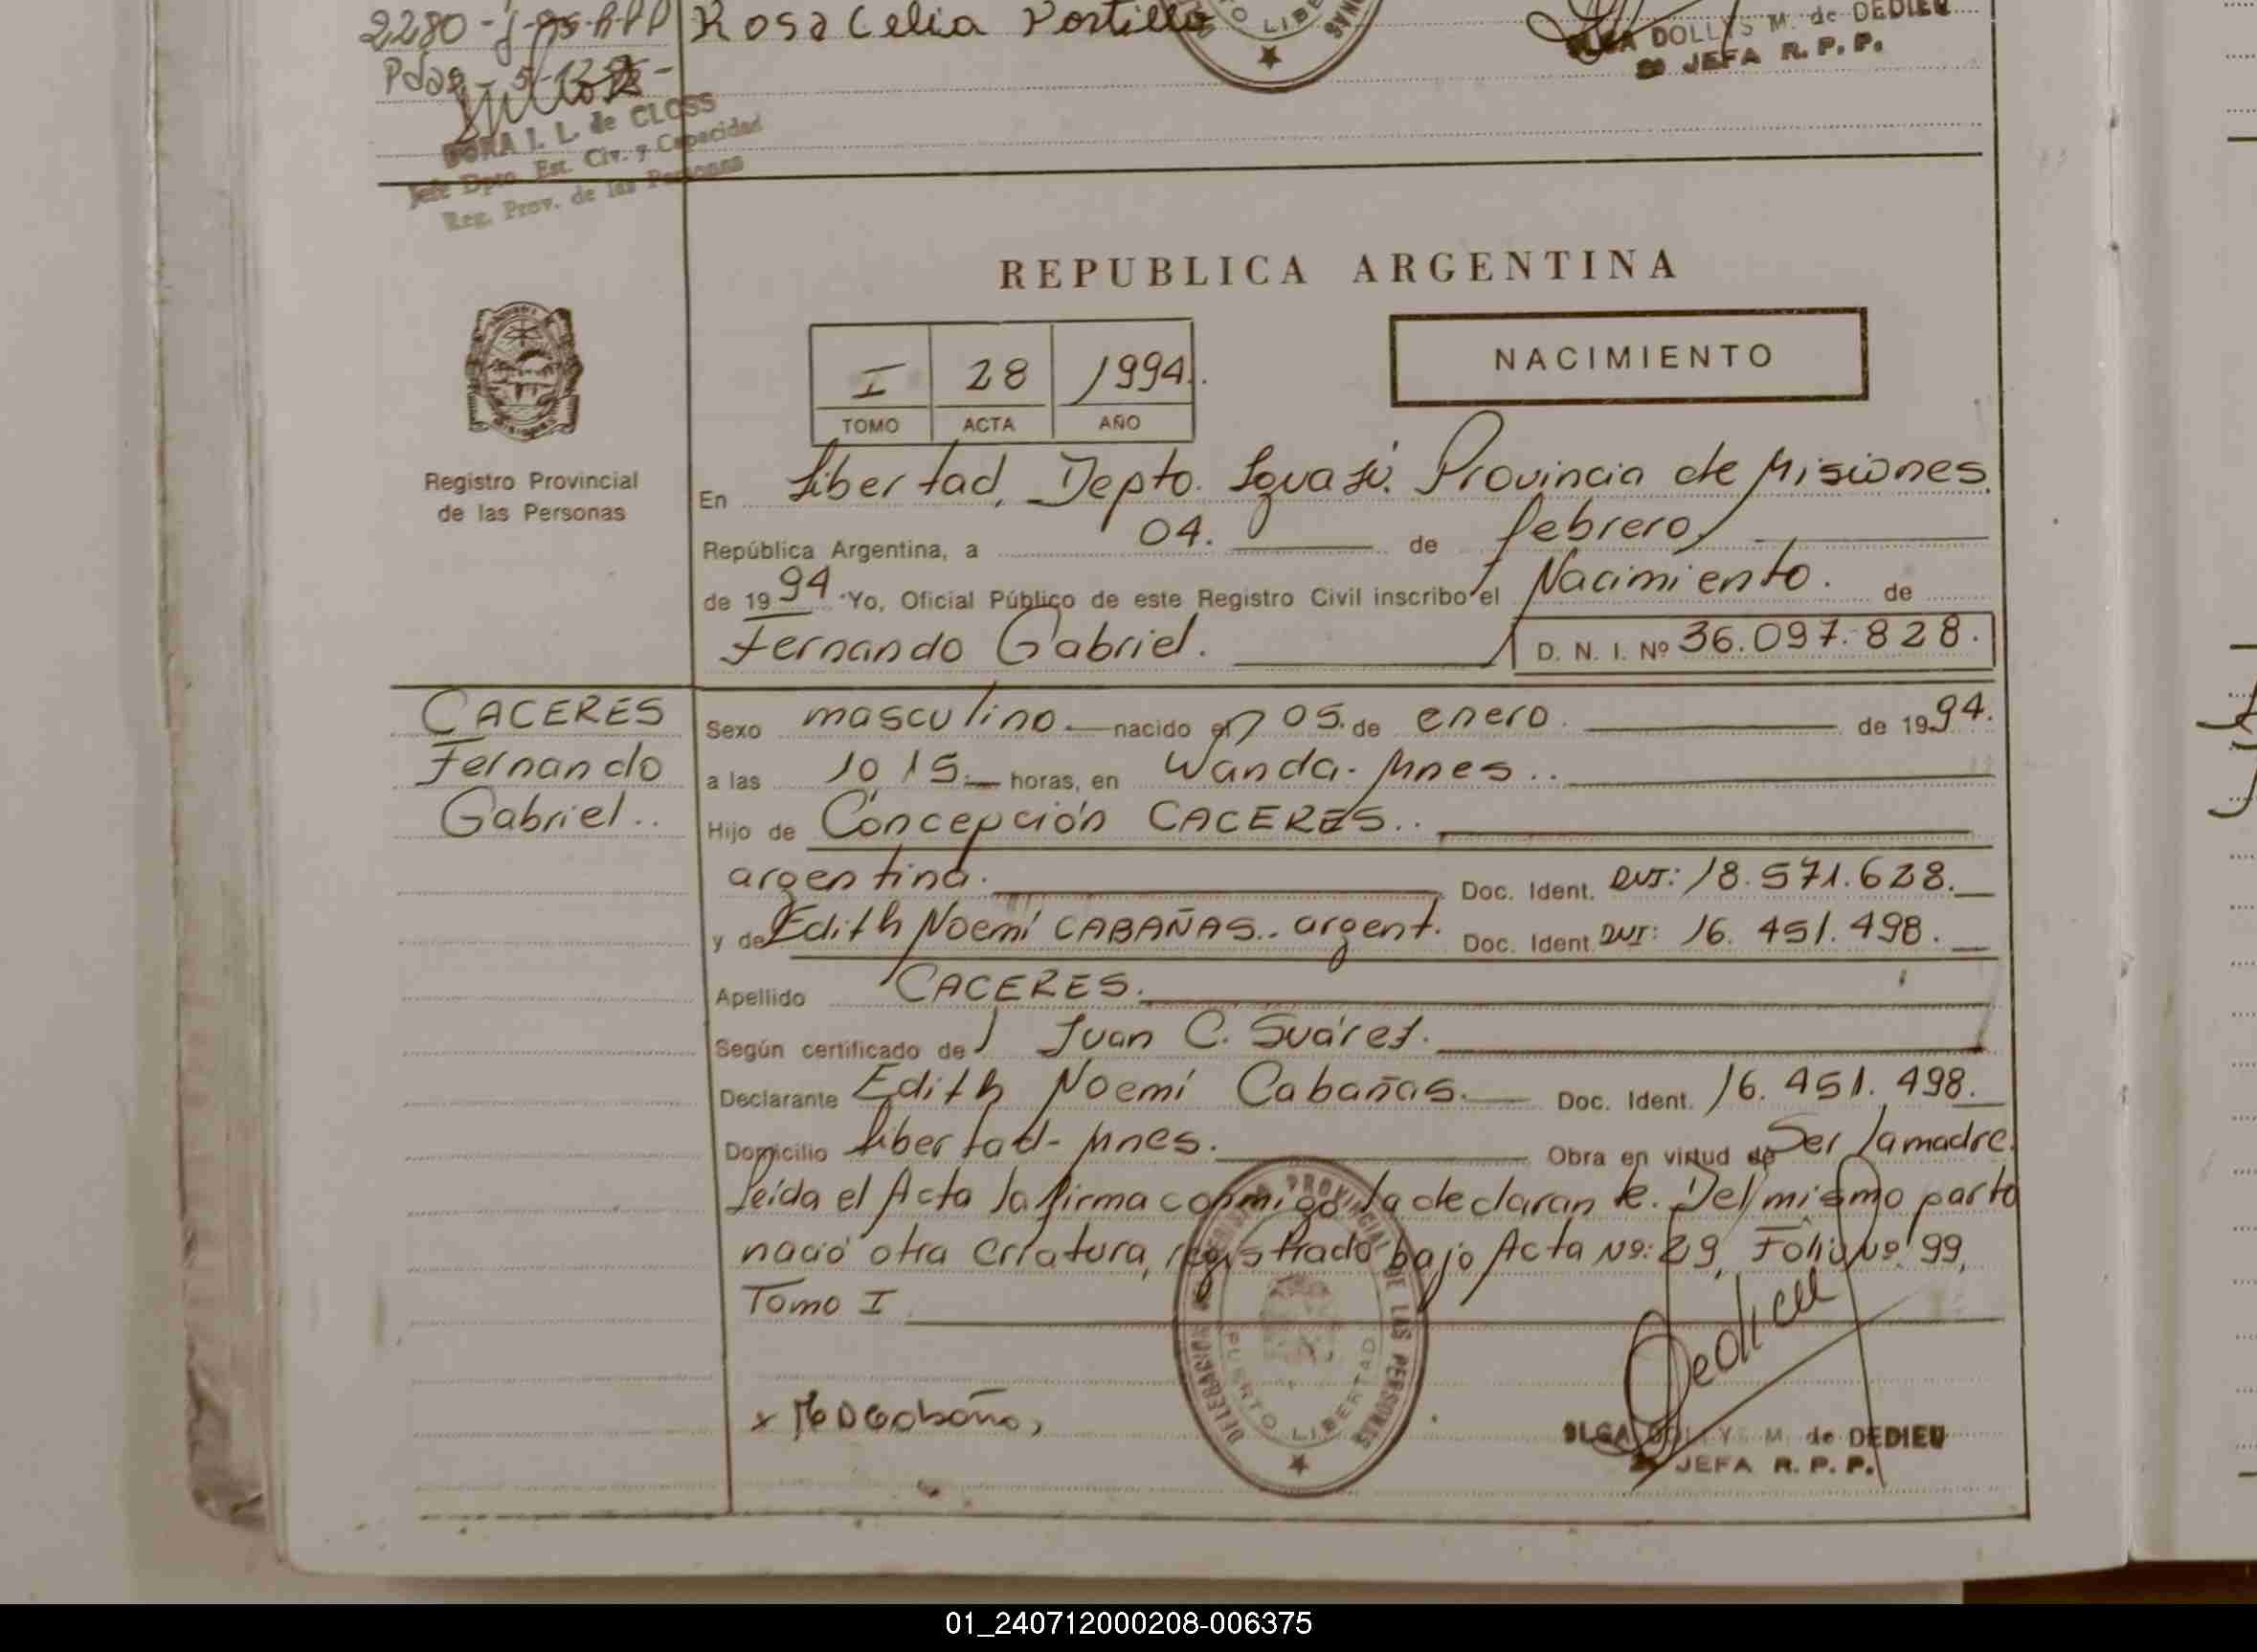 2280-J-95-RPP Rosa Celia Portillo
Pdas - 5-12-95-
DORA I. L. de CLOSS
Jefe Dpto. Est. Civ. y Capacidad
Reg. Prov. de las Personas
OLGA DOLLYS M. de DEDIEU
JEFA R. P. P.
REPUBLICA ARGENTINA
I 28 1994.
TOMO ACTA AÑO
NACIMIENTO
Registro Provincial
de las Personas
En Libertad, Depto. Iguazú. Provincia de Misiones.
República Argentina, a 04. de febrero
de 1994 Yo, Oficial Público de este Registro Civil inscribo el Nacimiento. de
Fernando Gabriel. D. N. I. Nº 36.097.828.
CACERES
Fernando
Gabriel..
Sexo masculino. nacido el 05. de enero. de 1994.
a las 10 15. horas, en Wanda- Mnes..
Hijo de Concepción CACERES..
argentina. Doc. Ident. DNI: 18.571.628.
y de Edith Noemí CABAÑAS.. argent. Doc. Ident. DNI: 16.451.498.
Apellido CACERES.
Según certificado de Juan C. Suárez.
Declarante Edith Noemí Cabañas. Doc. Ident. 16.451.498.
Domicilio Libertad- Mnes. Obra en virtud de Ser la madre.
Leída el Acta la firma conmigo la declarante. Del mismo parto
nació otra criatura, registrado bajo Acta Nº: 29, Folio Nº 99,
Tomo I
DELEGACION REGISTRO PROVINCIAL DE LAS PERSONAS
PUERTO LIBERTAD
Dedieu
OLGA DOLLYS M. de DEDIEU
JEFA R. P. P.
01_240712000208-006375